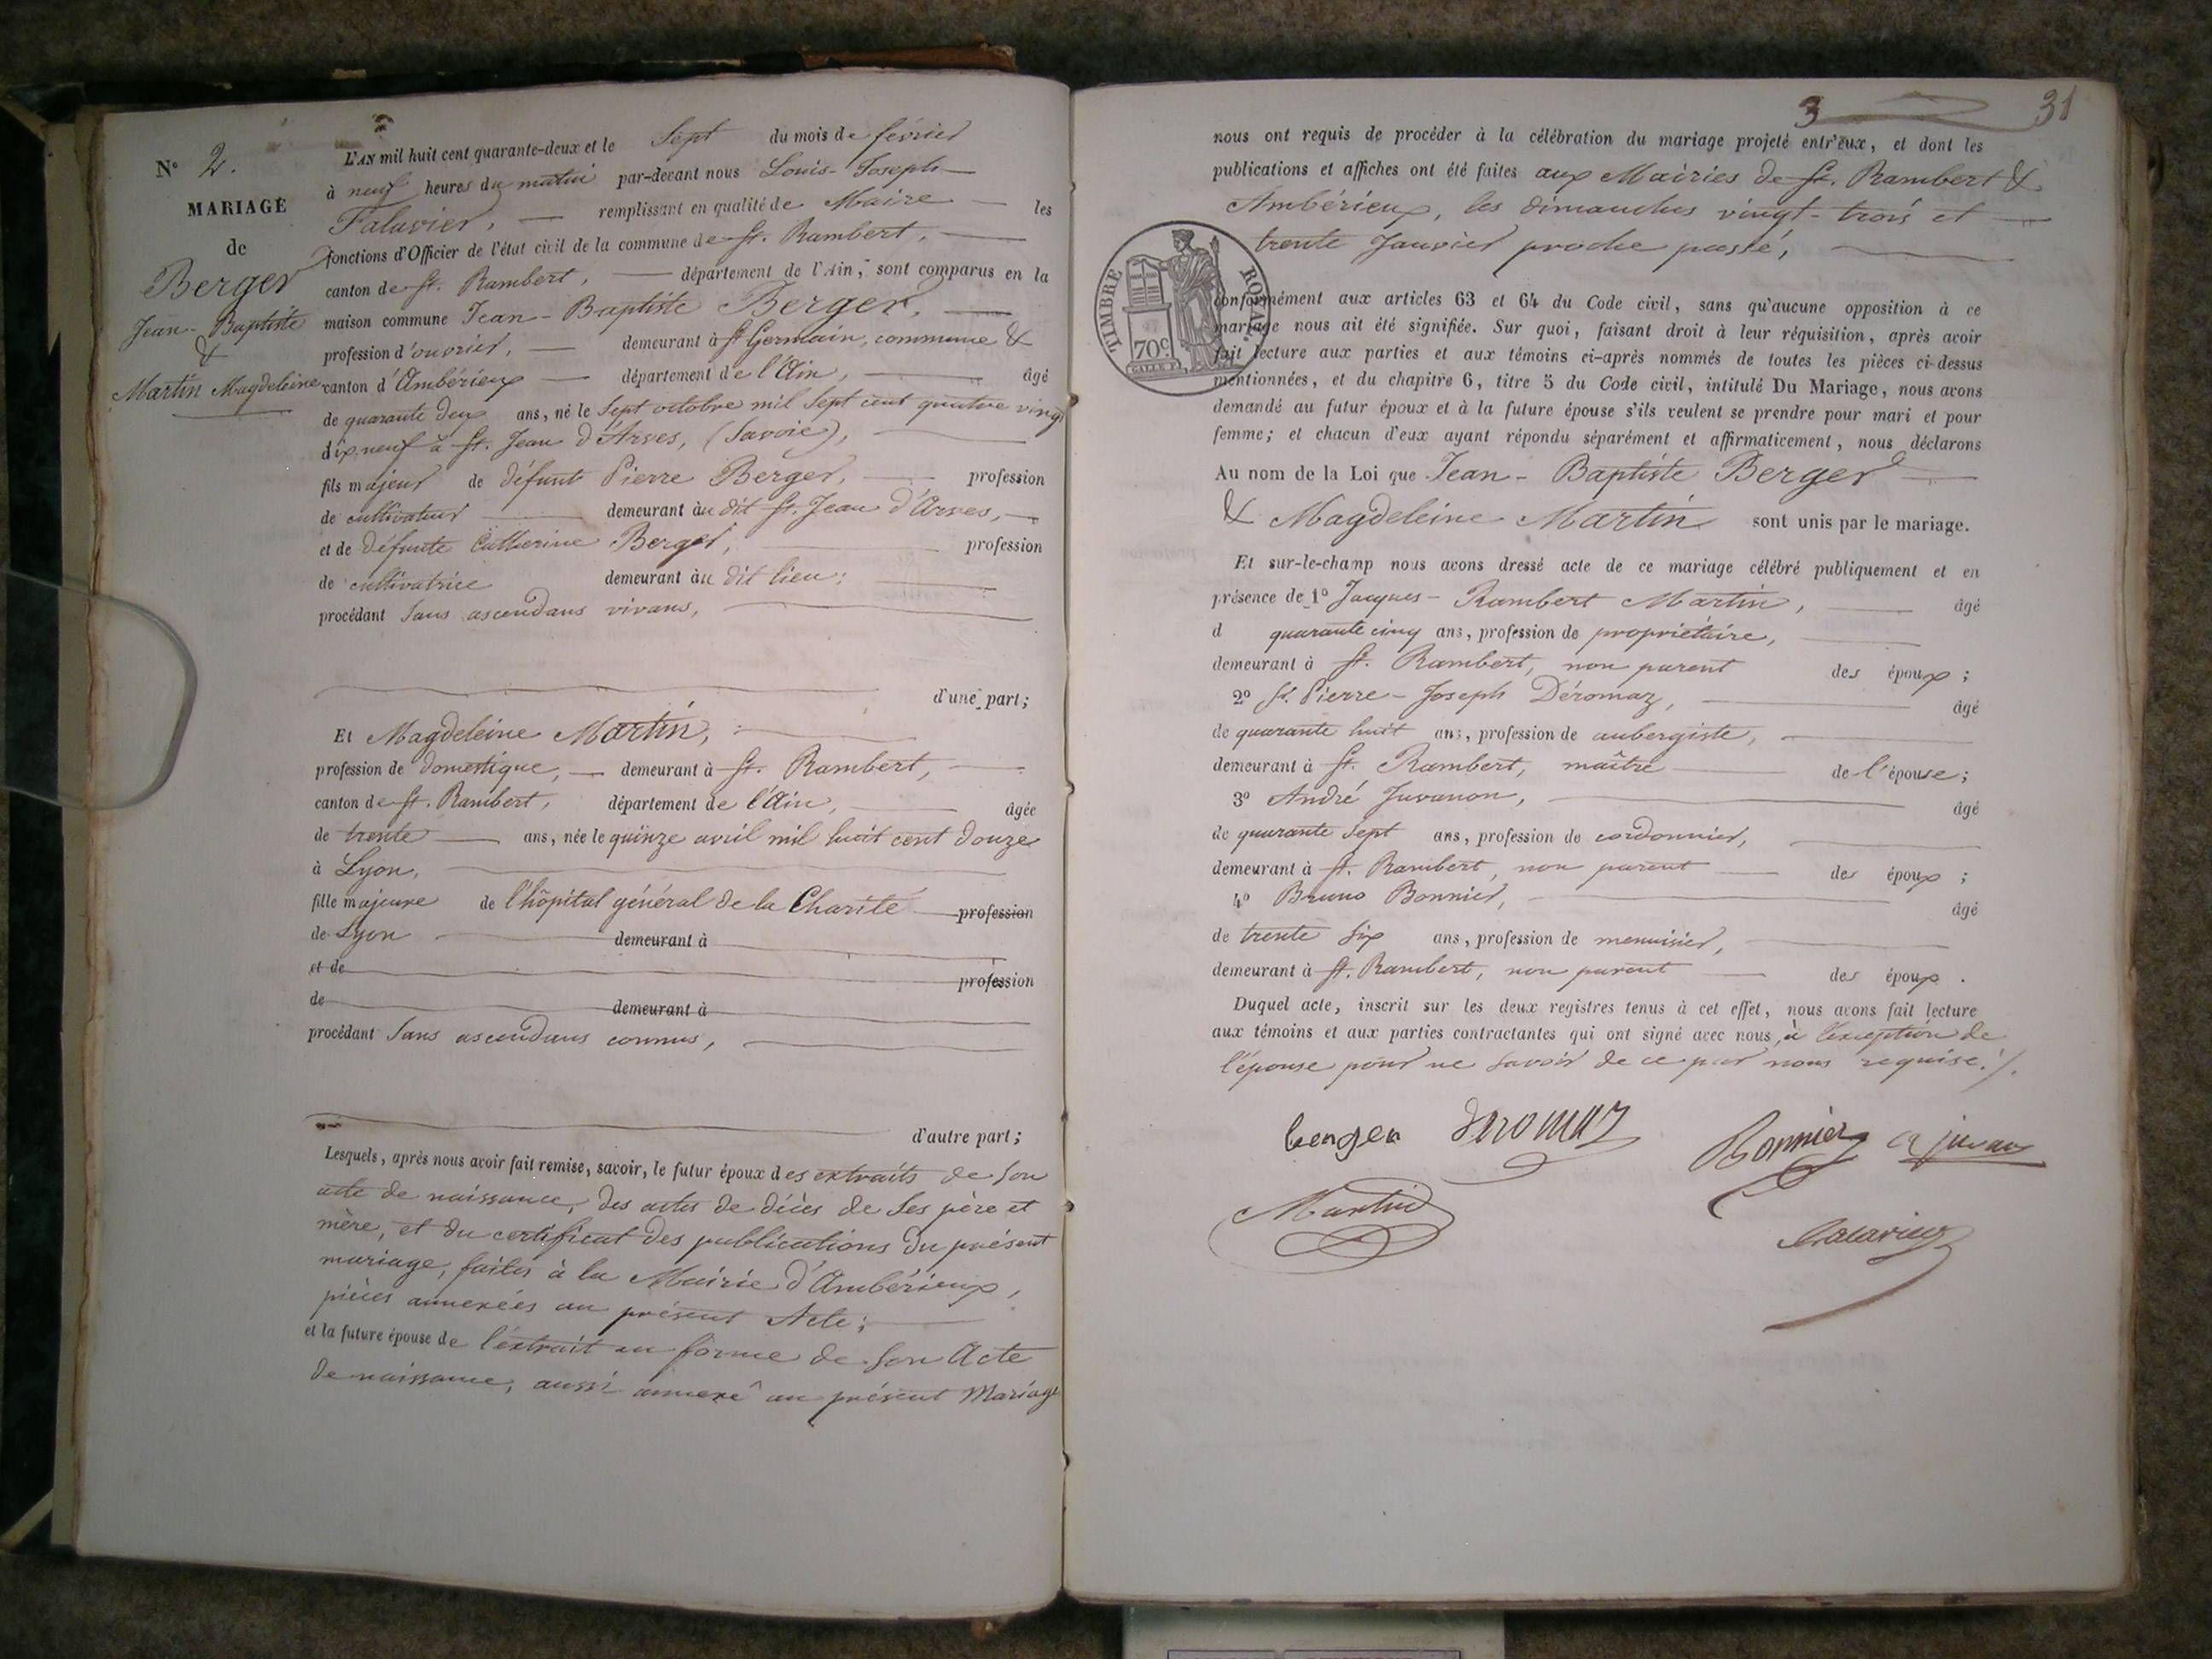 N° 2.
MARIAGE
de
Berger
Jean-Baptiste
&
Martin Magdeleine
L'AN mil huit cent quarante-deux et le Sept du mois de février
à neuf heures du matin par-devant nous Louis-Joseph
Falavier, remplissant en qualité de Maire les
fonctions d'Officier de l'état civil de la commune de St. Rambert,
canton de St. Rambert, département de l'Ain, sont comparus en la
maison commune Jean-Baptiste Berger,
profession d'ouvrier, demeurant à St Germain, commune &
canton d'Ambérieux département de l'Ain, âgé
de quarante deux ans, né le Sept octobre mil Sept cent quatre vingt
dix neuf à St. Jean d'Arves, (Savoie),
fils majeur de défunt Pierre Berger, profession
de cultivateur demeurant àu dit St. Jean d'Arves,
et de défunte Catherine Berger, profession
de cultivatrice demeurant àu dit lieu;
procédant Sans ascendans vivans,
d'une part;
Et Magdeleine Martin,
profession de domestique, demeurant à St. Rambert,
canton de St. Rambert, département de l'Ain, âgée
de trente ans, née le quinze avril mil huit cent douze
à Lyon,
fille majeure de l'hôpital général de la Charité profession
de Lyon demeurant à
et de profession
de demeurant à
procédant Sans ascendans connus,
d'autre part;
Lesquels, après nous avoir fait remise, savoir, le futur époux des extraits de Son
acte de naissance, des actes de décès de Ses père et
mère, et du certificat des publications du présent
mariage, faites à la Mairie d'Ambérieux,
pièces annexées au présent Acte;
et la future épouse de l'extrait en forme de Son Acte
de naissance, aussi annexé au présent Mariage
3 31
nous ont requis de procéder à la célébration du mariage projeté entr'eux, et dont les
publications et affiches ont été faites aux Mairies de St. Rambert &
Ambérieux, les dimanches vingt-trois et
trente Janvier proche passé,
TIMBRE ROYAL
70c
conformément aux articles 63 et 64 du Code civil, sans qu'aucune opposition à ce
mariage nous ait été signifiée. Sur quoi, faisant droit à leur réquisition, après avoir
fait lecture aux parties et aux témoins ci-après nommés de toutes les pièces ci-dessus
mentionnées, et du chapitre 6, titre 5 du Code civil, intitulé Du Mariage, nous avons
demandé au futur époux et à la future épouse s'ils veulent se prendre pour mari et pour
femme; et chacun d'eux ayant répondu séparément et affirmativement, nous déclarons
Au nom de la Loi que Jean-Baptiste Berger
& Magdeleine Martin sont unis par le mariage.
Et sur-le-champ nous avons dressé acte de ce mariage célébré publiquement et en
présence de 1° Jacques-Rambert Martin, âgé
d quarante cinq ans, profession de propriétaire,
demeurant à St. Rambert, non parent des époux;
2° Sr. Pierre-Joseph Déromaz, âgé
de quarante huit ans, profession de aubergiste,
demeurant à St. Rambert, maître de l'épouse;
3° André Juvanon, âgé
de quarante Sept ans, profession de cordonnier,
demeurant à St. Rambert, non parent des époux;
4° Bruno Bonnier, âgé
de trente Six ans, profession de menuisier,
demeurant à St. Rambert, non parent des époux.
Duquel acte, inscrit sur les deux registres tenus à cet effet, nous avons fait lecture
aux témoins et aux parties contractantes qui ont signé avec nous, à l'exception de
l'épouse pour ne Savoir de ce par nous requise./.
berger deromaz Bonnier juvan
Martin
Falavier